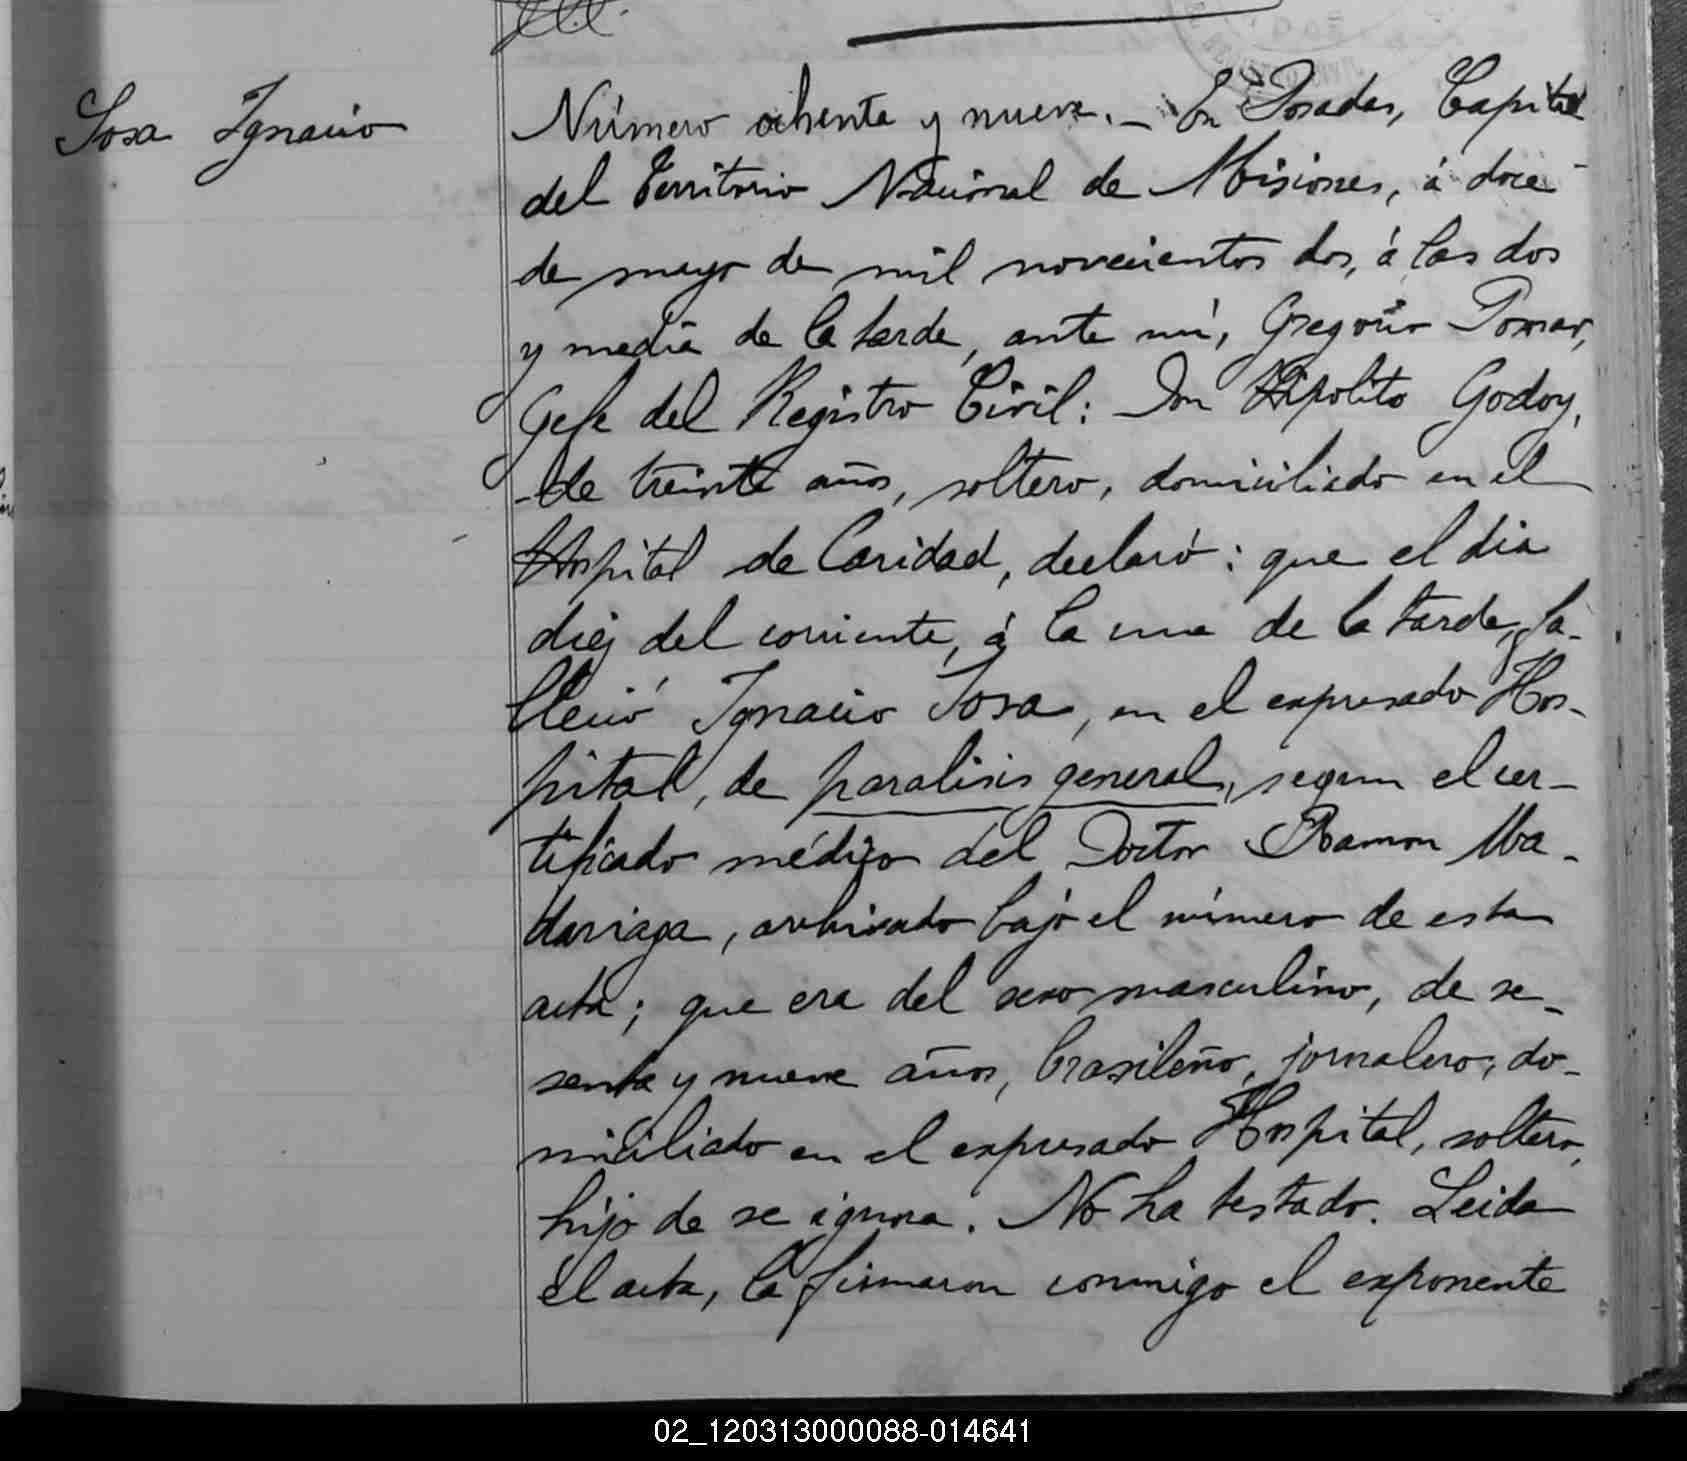 Sosa Ignacio
Número ochenta y nueve. – En Posadas, Capital
del Territorio Nacional de Misiones, á doce
de mayo de mil novecientos dos, á las dos
y media de la tarde, ante mí, Gregorio Pomar,
Gefe del Registro Civil: Don Hipolito Godoy,
de treinta años, soltero, domiciliado en el
Hospital de Caridad, declaró: que el dia
diez del corriente, á la una de la tarde, fa-
lleció Ignacio Sosa, en el expresado Hos-
pital, de paralisis general, segun el cer-
tificado médico del Doctor Ramon Ma-
dariaga, archivado bajo el número de esta
acta; que era del sexo masculino, de se-
senta y nueve años, brasileño, jornalero, do-
miciliado en el expresado Hospital, soltero,
hijo de se ignora. No ha testado. Leida
el acta, la firmaron conmigo el exponente
02_120313000088-014641